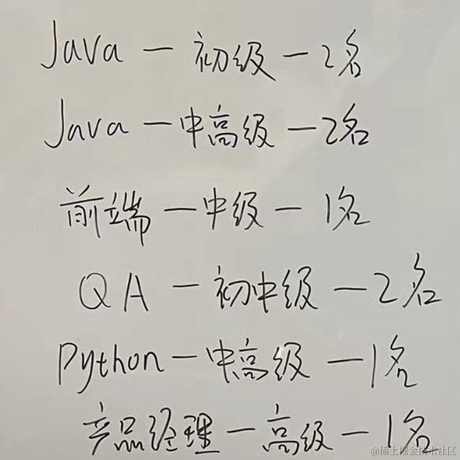 Java — 初级 — 2名
Java — 中高级 — 2名
前端 — 中级 — 1名
QA — 初中级 — 2名
Python — 中高级 — 1名
产品经理 — 高级 — 1名
@稀土掘金技术社区